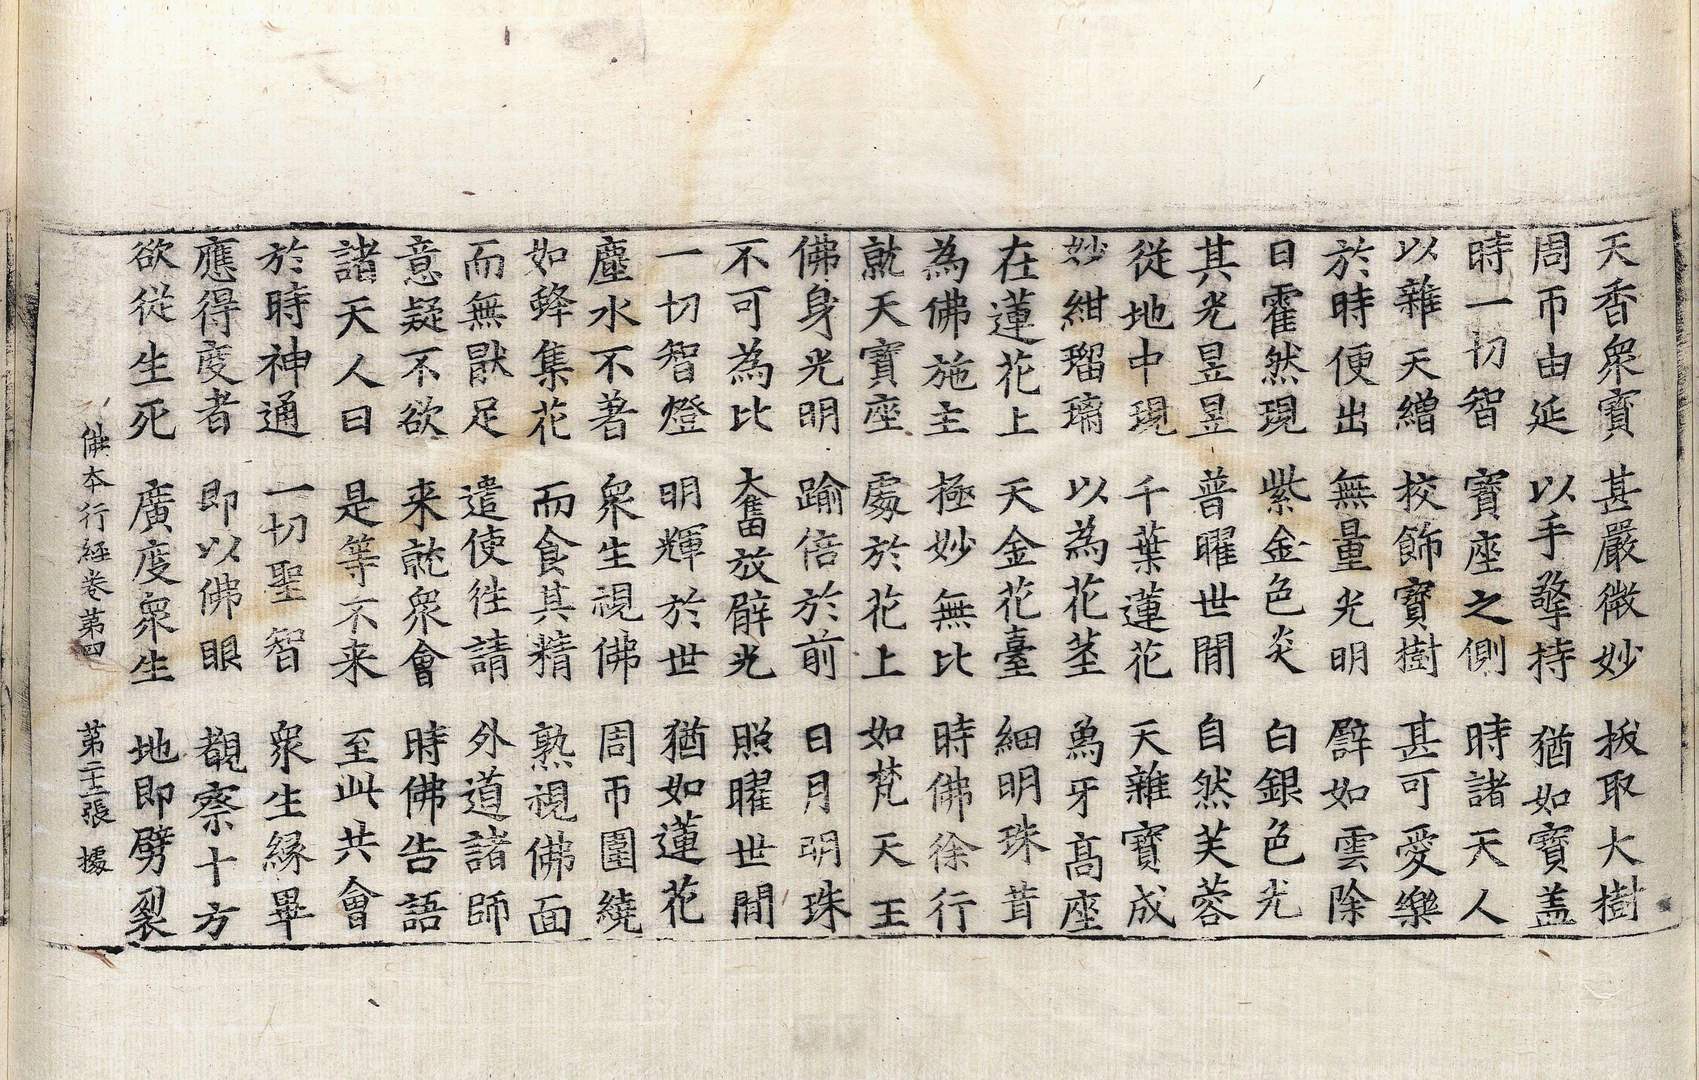 天香衆寶 甚嚴微妙 拔取大樹
周帀由延 以手擎持 猶如寶盖
時一切智 寶座之側 時諸天人
以雜天繒 挍飾寶樹 甚可愛樂
於時便出 無量光明 譬如雲除
日霍然現 紫金色炎 白銀色光
其光昱昱 普曜世閒 自然芙蓉
從地中現 千葉蓮花 天雜寶成
妙紺瑠璃 以為花莖 為牙髙座
在蓮花上 天金花臺 細明珠茸
為佛施主 極妙無比 時佛徐行
就天寶座 處於花上 如梵天王
佛身光明 踰倍於前 日月明珠
不可為比 奮放臂光 照曜世閒
一切智燈 明輝於世 猶如蓮花
塵水不著 衆生視佛 周帀圍繞
如蜂集花 而食其精 熟視佛面
而無猒足 遣使徃請 外道諸師
意疑不欲 来就衆會 時佛告語
諸天人曰 是等不来 至此共會
於時神通 一切聖智 衆生緣畢
應得度者 即以佛眼 觀察十方
欲從生死 廣度衆生 地即劈裂
佛本行経卷第四 第二十二張 據